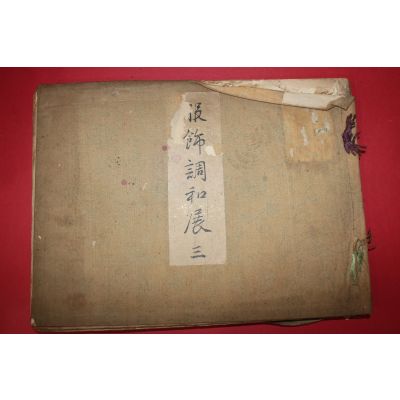 服飾調和展 三